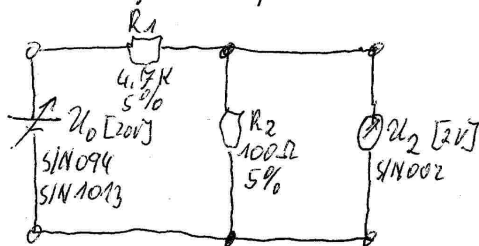 R1
4.7K
5%
U0 [20V]
S/N094
S/N1013
R2
100Ω
5%
U2 [2V]
S/N002